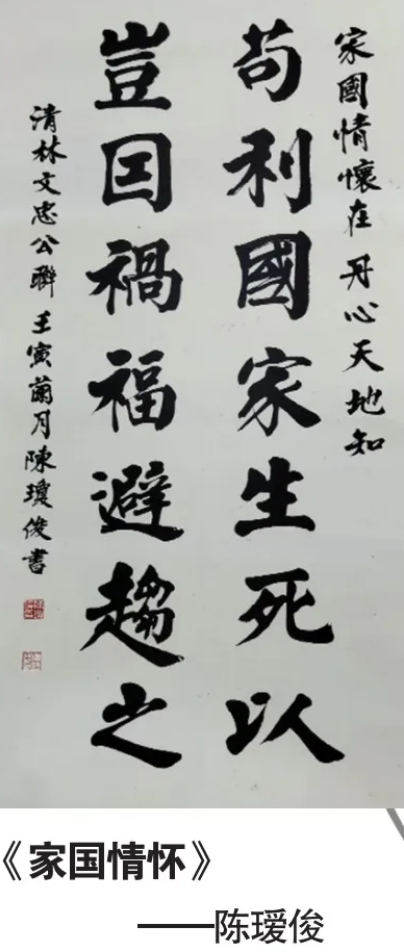 家國情懷在 丹心天地知
苟利國家生死以
豈囙禍福避趨之
清林文忠公聯 壬寅蘭月陳璦俊書
《家国情怀》
——陈瑷俊